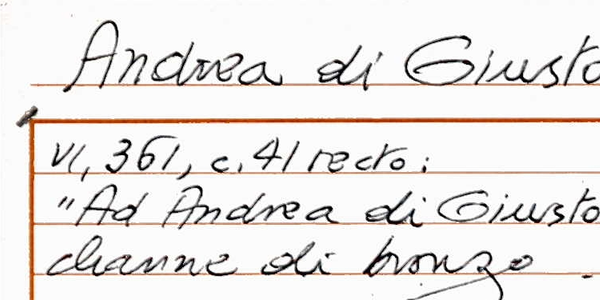 Andrea di Giusto
VI, 361, c. 41 recto:
"Ad Andrea di Giusto
channe di bronzo